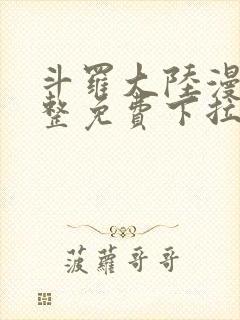 斗羅大陸漫
整免費下拉
菠蘿哥哥